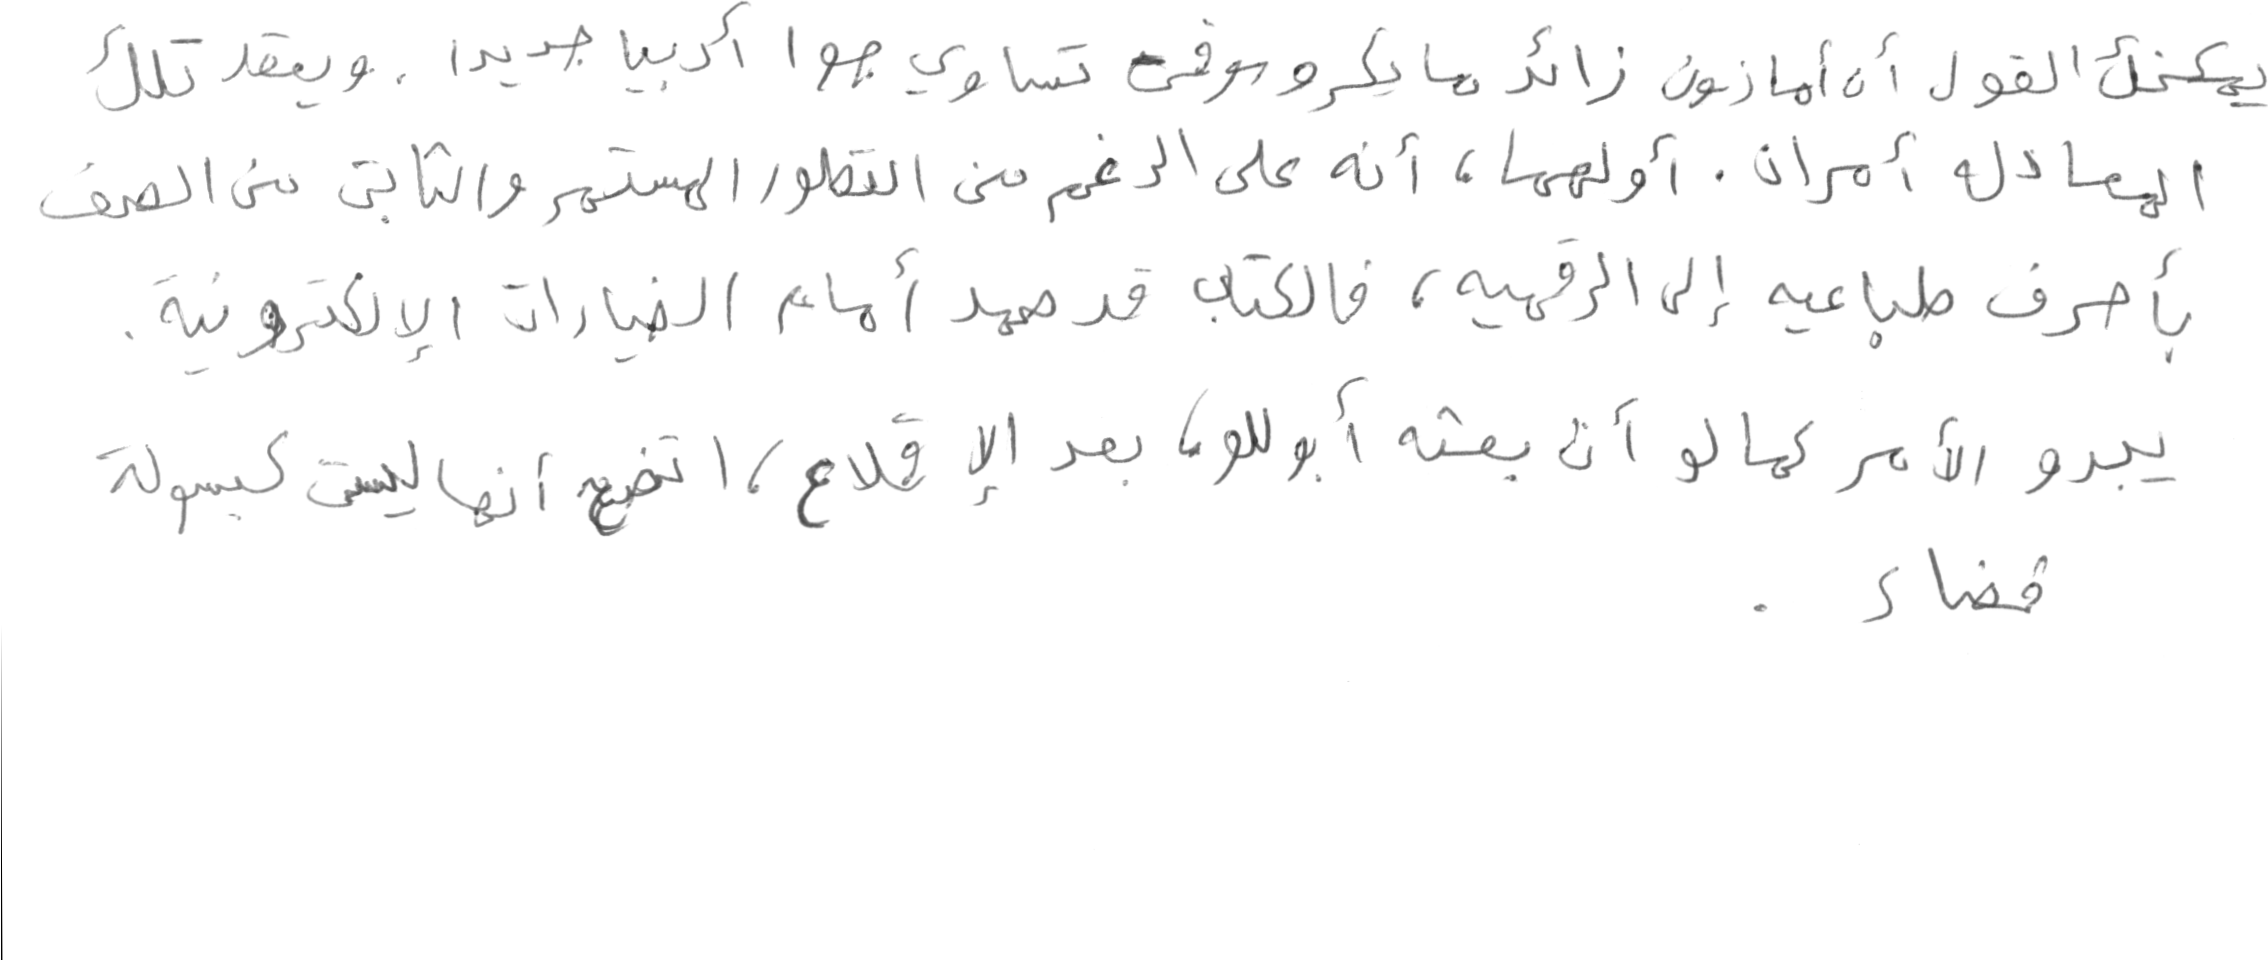 يمكنك القول أن أمازون زائد مايكروسوفت تساوي جوا أدبيا جديدا . ويعقد تلك
المعادله أمران . أولهما ، أنه على الرغم من التطور المستمر والثابت من الصف
بأحرف طباعيه إلى الرقميه ، فالكتاب قد صمد أمام الخيارات الإلكترونية .
يبدو الأمر كما لو أن بعثه أبوللو ، بعد الإقلاع ، اتضح أنها ليست كبسولة
فضاء .